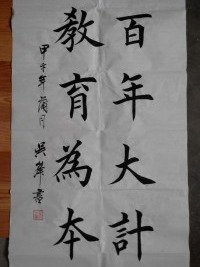 百年大計
教育為本
甲午年蘭月 吳華書